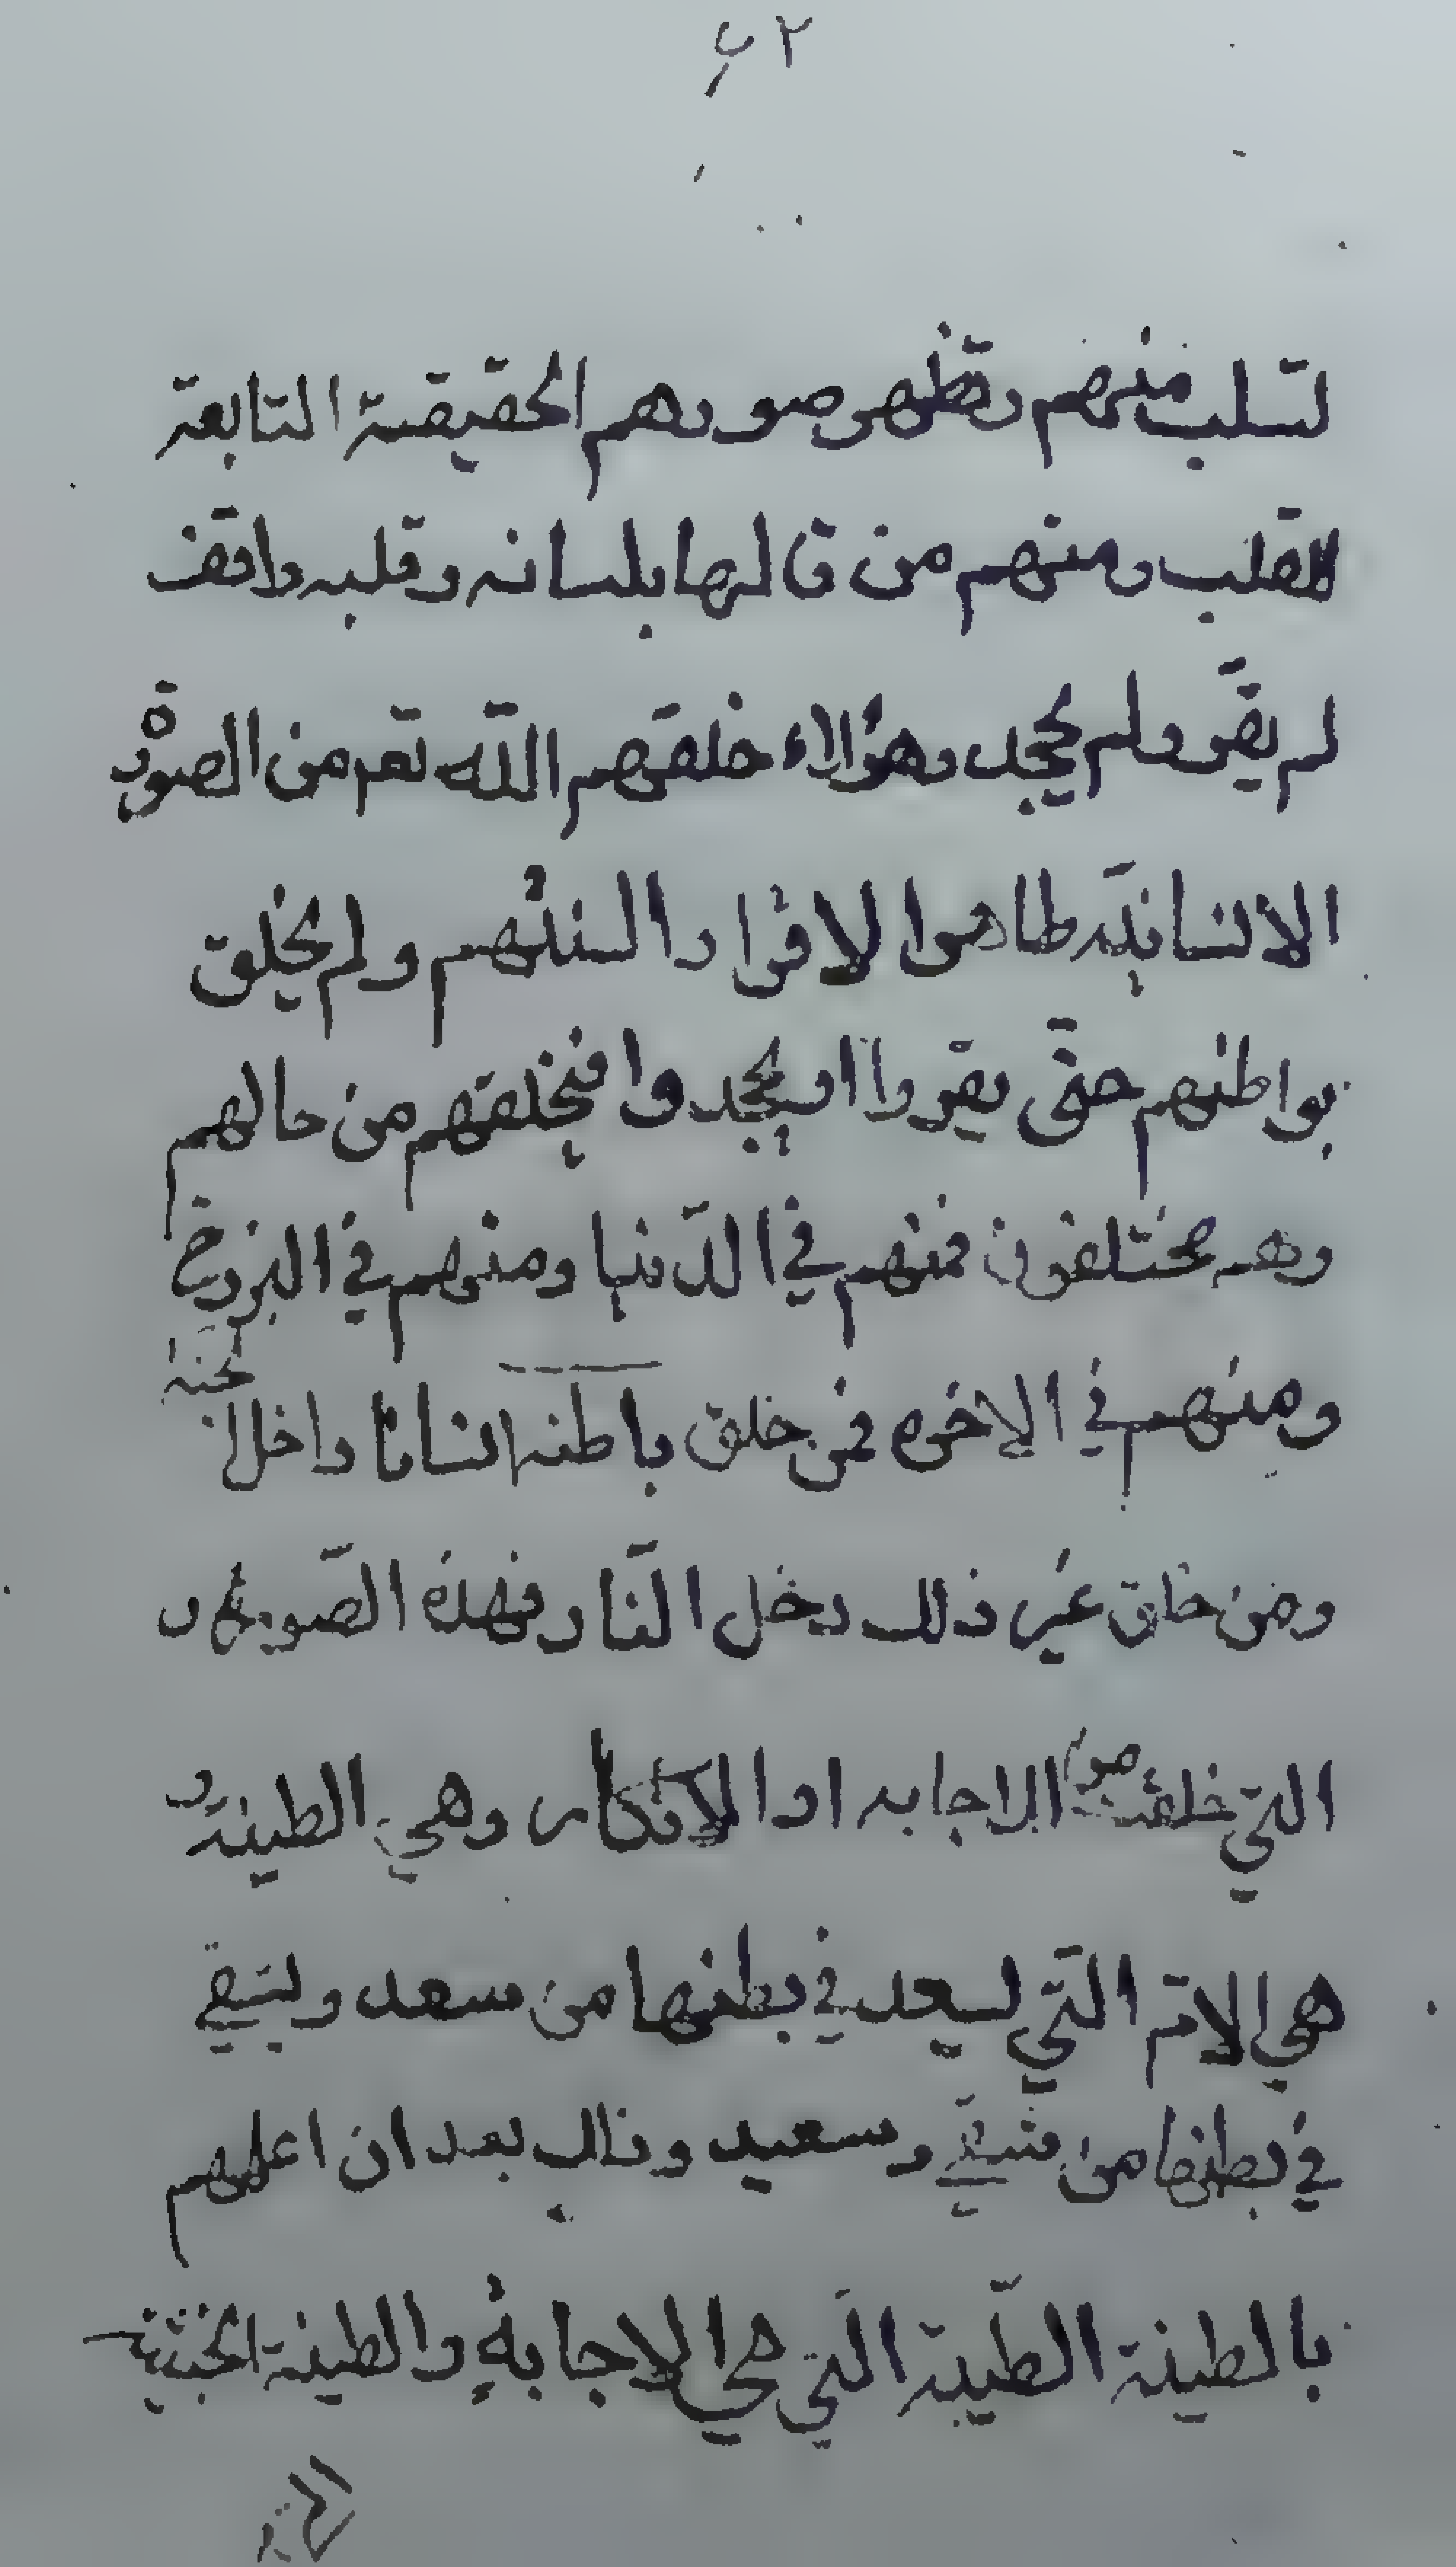 ٦٢
لتسلب منهم وتظهر صورهم الحقيقية التابعة
للقلب ومنهم من قالها بلسانه وقلبه واقف
لم يقر ولم يجحد وهؤلاء خلقهم الله تعم من الصورة
الانسانية ظاهرا لاقرار السنتهم ولم يخلق
بواطنهم حتى يقروا او يجحدوا فيخلقهم من حالهم
وهم مختلفون فمنهم في الدنيا ومنهم في البرزخ
ومنهم في الاخره فمن خلق باطنه انسانا دخل الجنة
ومن خلق غير ذلك دخل النار فهذه الصورة
التي خلقت من الاجابه او الانكار وهي الطينة و
هي الام التي يسعد في بطنها من سعد ويشقى
في بطنها من شقي وسعيد وذلك بعد ان اعلمهم
بالطينة الطيبة التي هي الاجابة والطينة الخبيثة
التي